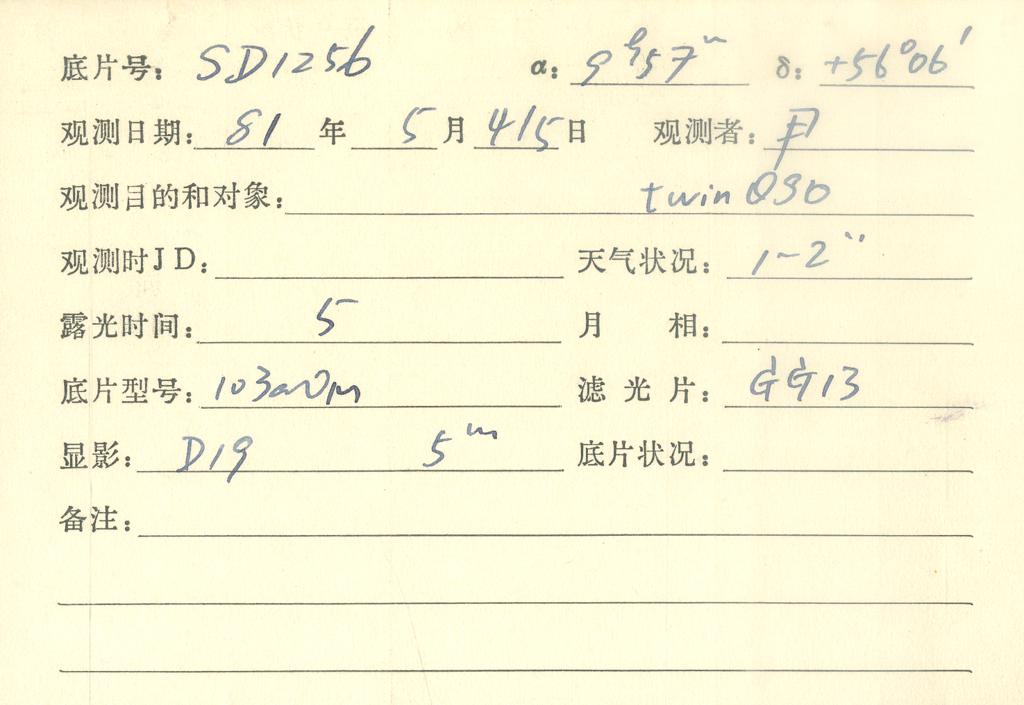 底片号: SD1256 α: 9ʰ57ᵐ δ: +56°06′
观测日期: 81 年 5 月 4/5 日 观测者:
观测目的和对象: twin QSO
观测时JD: 天气状况: 1~2″
露光时间: 5 月 相:
底片型号: 103aOm 滤光片: GG13
显影: D19 5ᵐ 底片状况:
备注: